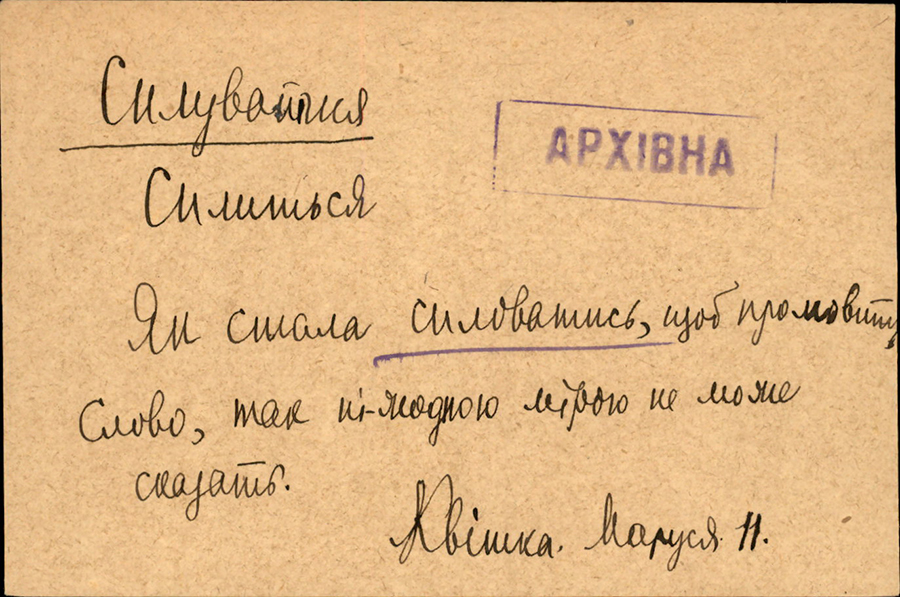 Силуватися
АРХІВНА
Силиться
Як стала силоватись, щоб промовити
слово, так ні-жодною мірою не може
сказать.
Квітка. Маруся. 11.